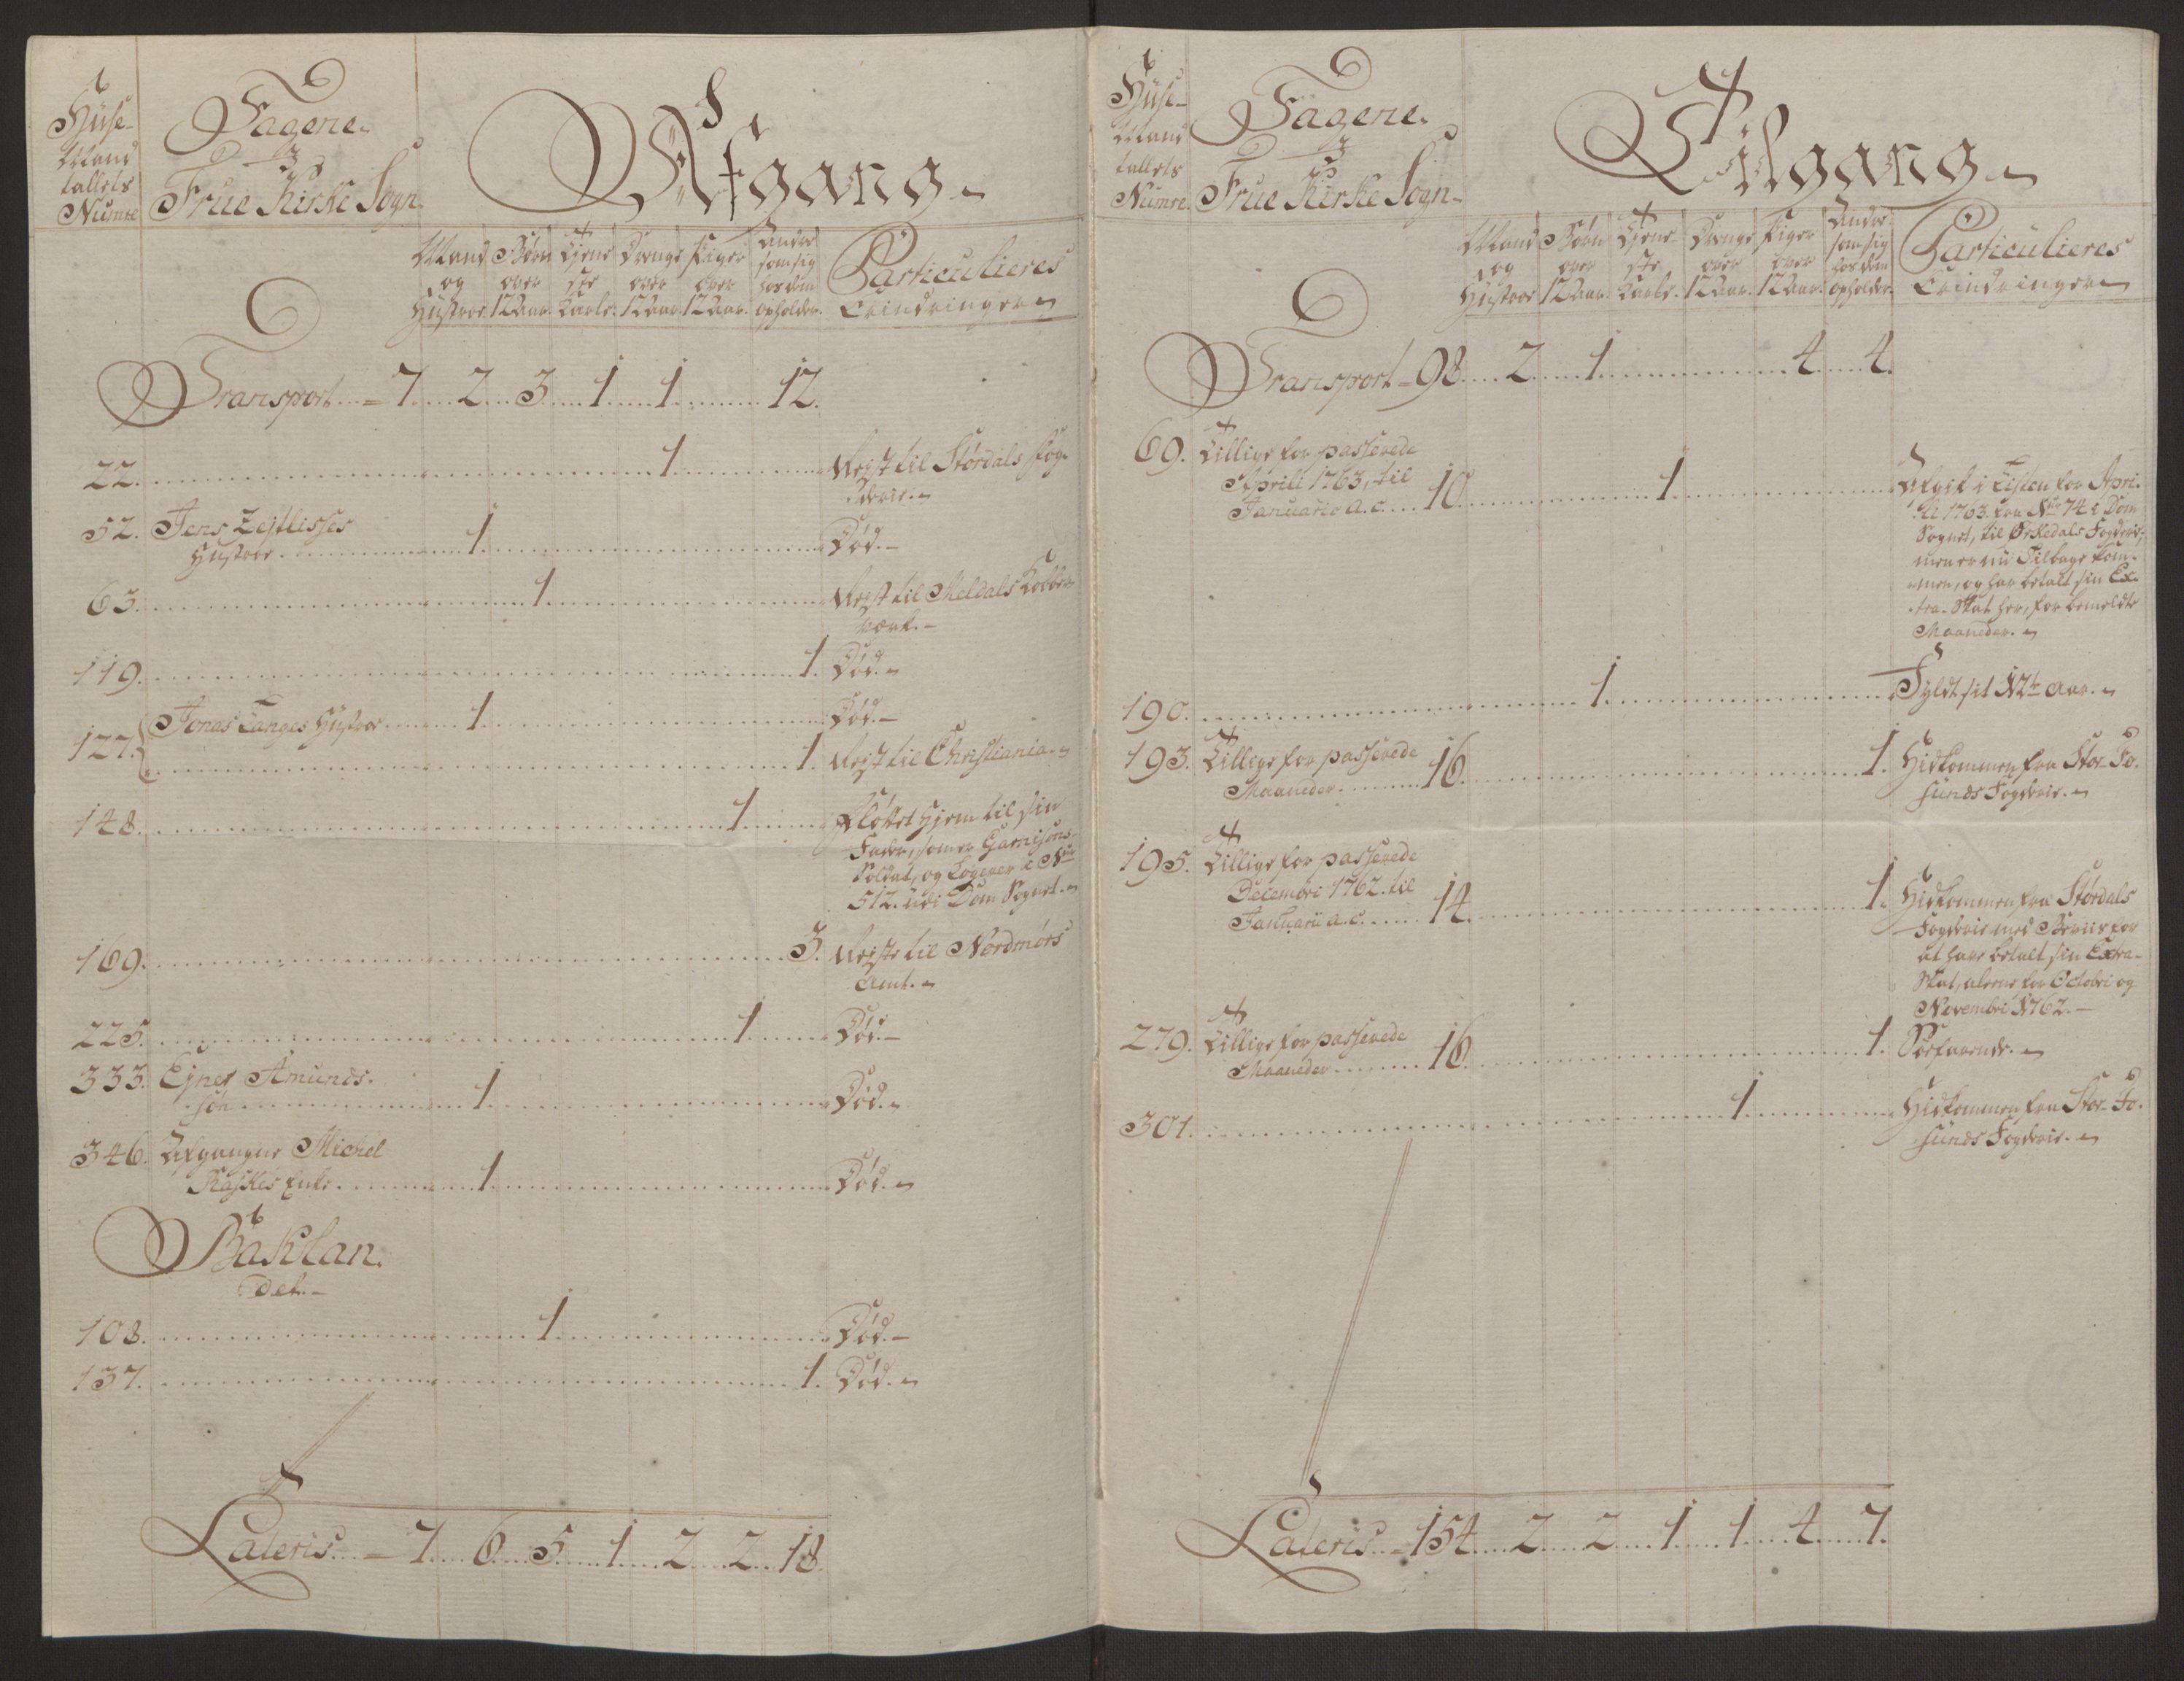 Huse-
Mand
tallets
Numre
Tagene
3
Frue Kirke Sogn.
Afgang
Mand og Hustroe
Børn over 12 Aar.
Tjene ste Karle.
Drenge over 12 Aar.
Piger over 12 Aar.
Andre som sig hos dem opholder.
Particulieres
Erindringer
Transport = 7. 2. 3. 1. 1. 12.
22. 1. Rejst til Størdals Fog-
derie.
52. Jens
Hustroe 1. Død.
63. 1. Rejst til Meldals Kobber
værk.
119. 1. Død.
127. Jonas Langes Hustroe 1. Død.
1. Rejst til Christiania.
148. 1. Fløttet hjem til sin
Fader, som er Garnisons
Soldat, og Logerer i No
512. udi Dom Sognet.
169. 3. Rejste til Nordmørs
Amt.
225. 1. Død.
333. Ejner Amunds.
søn 1. Død.
346. Afgangne Michel
Raskes Enke 1. Død.
Baklan.
det.
108. 1. Død.
137. 1. Død.
Lateris = 7. 6. 5. 1. 2. 2. 18.
Huse-
Mand
tallets
Numre
Tagene.
3
Frue Kirke Sogn.
Tilgang
Mand og Hustroe
Børn over 12 Aar.
Tjene ste Karle.
Drenge over 12 Aar.
Piger over 12 Aar.
Andre som sig hos dem opholder.
Particulieres
Erindringer
Transport = 98. 2. 1. 4. 4.
69. Tillige for passerede
Aprili 1763, til
Januario a.c. 10. 1. Afgik i Listen for Apri-
li 1763. fra No 74 i Dom
Sognet, til Ørkedals Fogderie,
men er nu Tilbage kom-
men, og har betalt sin Ex-
tra-Skat her, for bemeldte
Maaneder.
190. 1. Fyldt sit 12te Aar.
193. Tillige for passerede
Maaneder 16. 1. Hidkommen fra Stor-Fo-
sunds Fogderie.
195. Tillige for passerede
Decembri 1762. til
Januarii a.c. 14. 1. Hidkommen fra Størdals
Fogderie med Beviis for
at have betalt sin Extra-
Skat, alene for Octobri og
Novembri 1762.
279. Tillige for passerede
Maaneder 16. 1. Søefarende.
301. 1. Hidkommen fra Stor-Fo-
sunds Fogderie.
Lateris = 154. 2. 2. 1. 1. 4. 7.